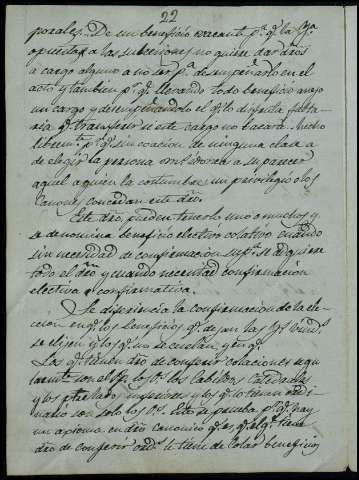 22
porales. De un beneficio vacante p.ª q.e la Yg.ª
opuesta a las sucesiones no quiere dar dros
a cargo alguno a no ser p.ª desempeñarlo en el
acto y tambien p.r q.e llevando todo beneficio anejo
un cargo y desempeñandolo el q.e lo disfruta
q.e transferir si este cargo no vacara. hecho
librem.te p.r q.e sin coacion de ninguna clase a
de elegir la persona mas idonea a su parecer
aquel a quien la costumbre, un privilegio o los
canones concedan este dro.
Este dro. pueden tenerlo uno o muchos y
se denomina beneficio electivo colativo cuando
sin necesidad de confirmacion sup.r se adquiere
todo el dro y cuando necesitad confirmacion
electiva o confirmativa.
Se diferencia la confirmacion de la elec-
cion en q.e los beneficios q.e dejan las
se elijen y los q.e no se en q.e
Los q.e tienen dro de conferir colaciones aqu
son el los los Cabildos Catedrales
y los prelados inferiores y los q.e lo tienen ordi-
nario son solo los Os. Esto se prueba p.r q.e hay
un axioma en dro canonico q.e es, q.e el q.e tiene
dro de conferir ord.s le tiene de colar beneficios